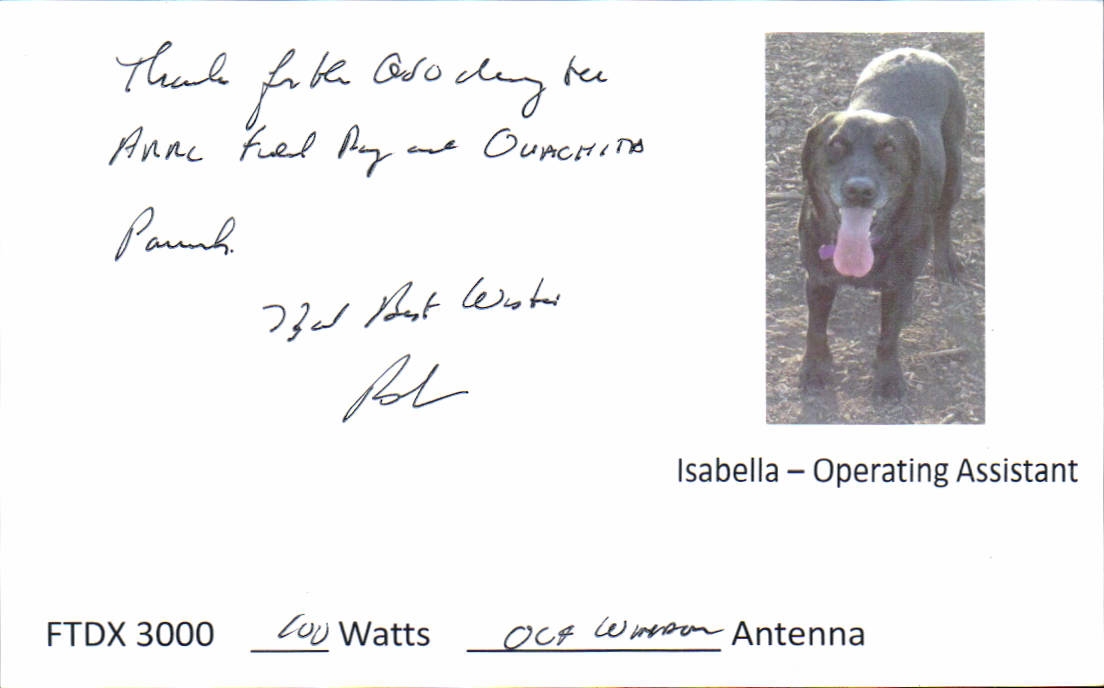 Thanks for the QSO during the
ARRL Field Day and OUACHITA
Parish.
73 and Best Wishes
Bob
Isabella – Operating Assistant
FTDX 3000 100 Watts OCF WINDOM Antenna